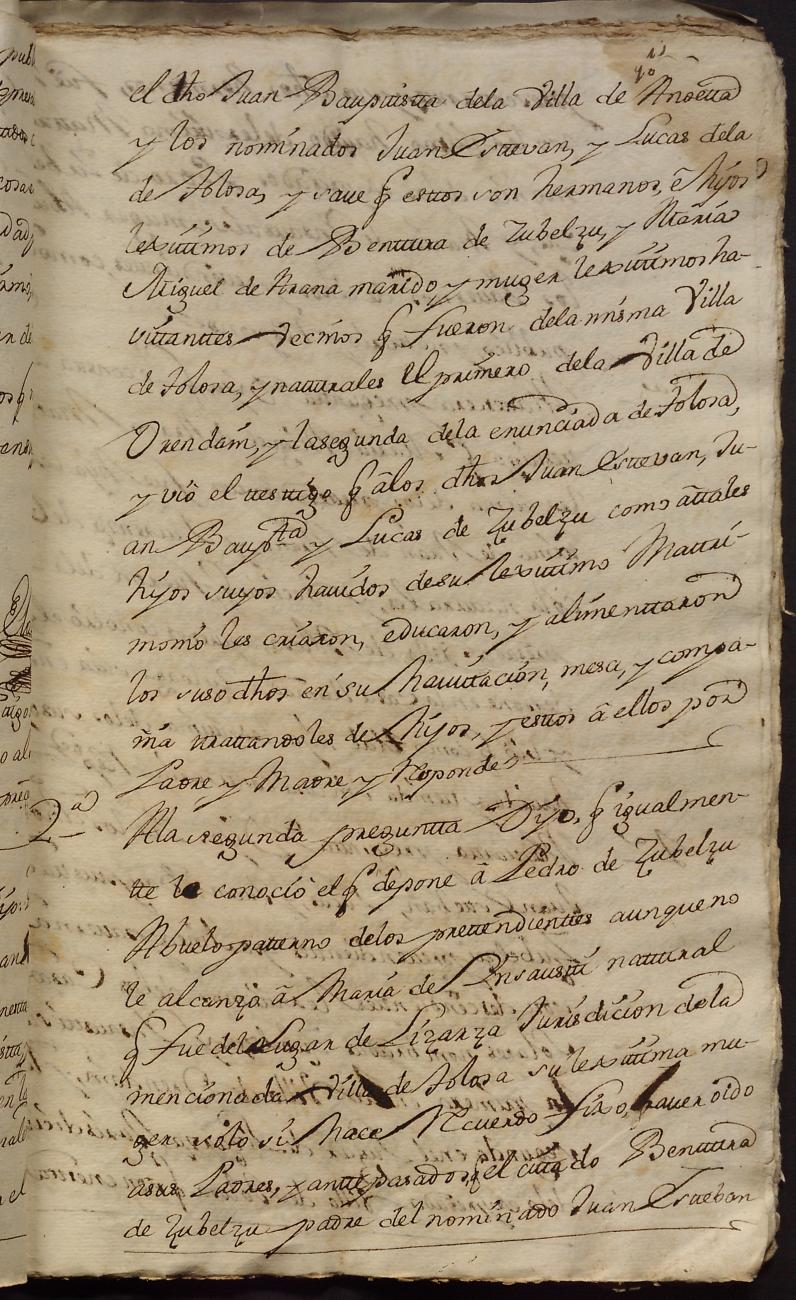 el dho Juan Bauptistta dela Villa de Anoetta
y los nominados Juan Esttevan, y Lucas dela
de Tolosa, y save q̃ esttos son hermanos, é hijos
lexittimos de Benttura de Zubelzu, y Maria
Miguel de Arana marido y muger lexittimos ha-
vittanttes vecinos q̃ fueron dela misma Villa
de Tolosa, y natturales el primero dela Villa de
Orendain, y la segunda dela enunciada de Tolosa,
y vió el testtigo q̃ âlos dhos Juan Esttevan, Ju-
an Baupttã y Lucas de Zubelzu como âttales
hijos suyos havidos de su lexittimo Mattri-
monio les criaron, educaron, y alimenttaron
los susodhos en su havittación, mesa, y compa-
ñia ttrattandoles de hijos, y esttos â ellos por
Padre y Madre y Rsponde
2ª Ala segunda preguntta Dijo, q̃ igualmen-
tte conoció el q̃ depone â Pedro de Zubelzu
Abuelo patterno delos prettendienttes aunque no
le alcanzo â Maria de Insausti nattural
q̃ fue del Lugar de Lizarza Jurisdicion dela
mencionada Villa de Tolosa su lexittima mu-
ger solo si hace Rcuerdo fixo, haver oido
asus Padres, y anttepasados q̃ el cittado Benttura
de Zubelzu padre del nominado Juan Esttevan